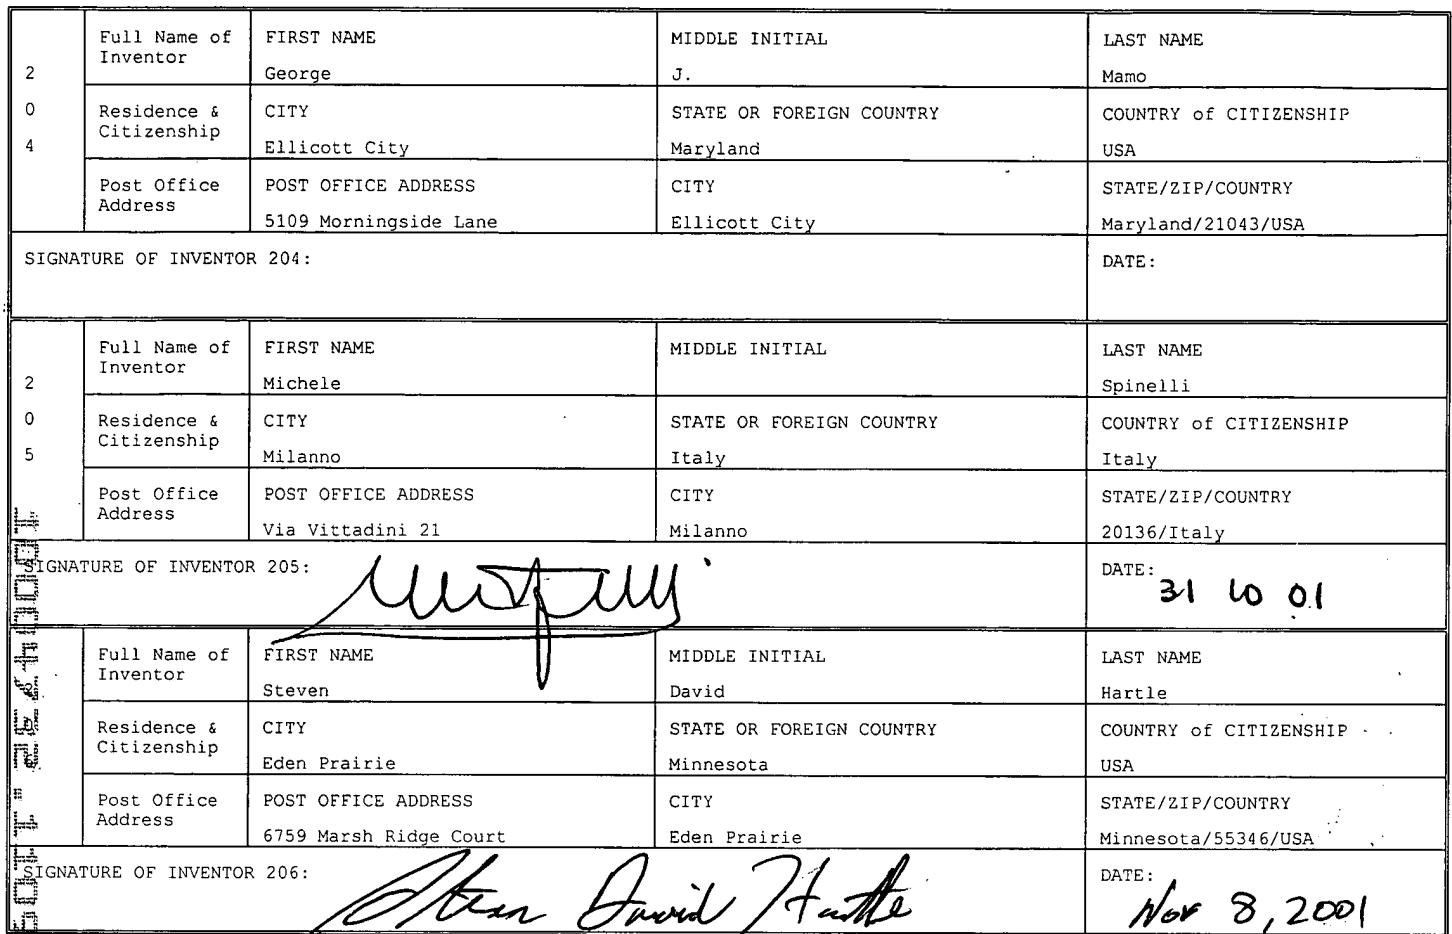 2 0 4
Full Name of Inventor
FIRST NAME
George
MIDDLE INITIAL
J.
LAST NAME
Mamo
Residence & Citizenship
CITY
Ellicott City
STATE OR FOREIGN COUNTRY
Maryland
COUNTRY of CITIZENSHIP
USA
Post Office Address
POST OFFICE ADDRESS
5109 Morningside Lane
CITY
Ellicott City
STATE/ZIP/COUNTRY
Maryland/21043/USA
SIGNATURE OF INVENTOR 204:
DATE:
2 0 5
Full Name of Inventor
FIRST NAME
Michele
MIDDLE INITIAL
LAST NAME
Spinelli
Residence & Citizenship
CITY
Milanno
STATE OR FOREIGN COUNTRY
Italy
COUNTRY of CITIZENSHIP
Italy
Post Office Address
POST OFFICE ADDRESS
Via Vittadini 21
CITY
Milanno
STATE/ZIP/COUNTRY
20136/Italy
SIGNATURE OF INVENTOR 205:
DATE: 31 10 01
Full Name of Inventor
FIRST NAME
Steven
MIDDLE INITIAL
David
LAST NAME
Hartle
Residence & Citizenship
CITY
Eden Prairie
STATE OR FOREIGN COUNTRY
Minnesota
COUNTRY of CITIZENSHIP
USA
Post Office Address
POST OFFICE ADDRESS
6759 Marsh Ridge Court
CITY
Eden Prairie
STATE/ZIP/COUNTRY
Minnesota/55346/USA
SIGNATURE OF INVENTOR 206: Steven David Hartle
DATE: Nov 8, 2001